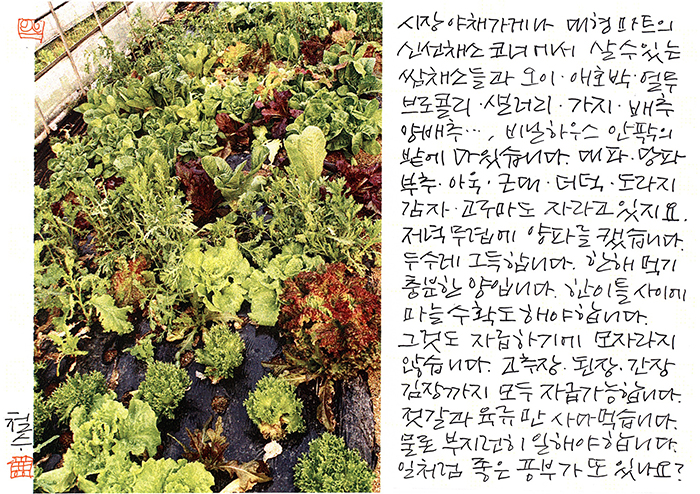 시장 야채가게나 대형 마트의
신선채소 코너에서 살 수 있는
쌈채소들과 오이·애호박·열무
브로콜리·샐러리·가지·배추
양배추…, 비닐하우스 안팎의
밭에 다 있습니다. 대파·양파
부추·아욱·근대·더덕·도라지
감자·고구마도 자라고 있지요.
저녁 무렵에 양파를 캤습니다.
두 수레 그득합니다. 한 해 먹기
충분한 양입니다. 한 이틀 사이에
마늘 수확도 해야 합니다.
그것도 자급하기에 모자라지
않습니다. 고추장·된장·간장
김장까지 모두 자급가능합니다.
젓갈과 육류만 사다 먹습니다.
물론 부지런히 일해야 합니다.
일처럼 좋은 풍부가 또 있나요?
철수